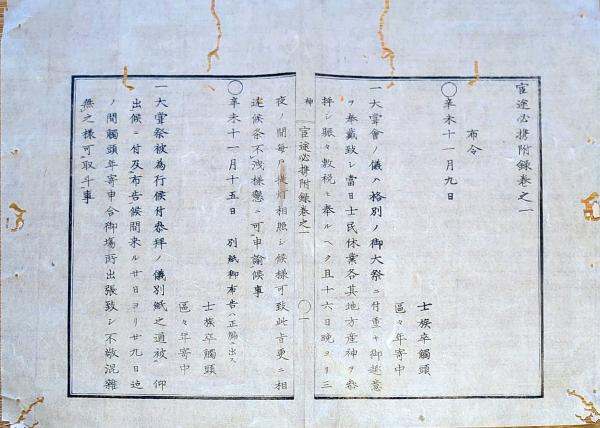 官途必携附録巻之一
布令
〇辛未十一月九日
士族卒觸頭
區々年寄中
一大嘗會ノ儀ハ格別ノ御大祭ニ付重キ御趣意
ヲ奉戴致シ當日士民休業各其地方産神ヲ参
拝シ賑々敷祝シ奉ルヘク且十六日晩ヨリ三
神 官途必携附録巻之一 〇一
夜ノ間毎戸掛灯相照シ候様可致此旨更ニ相
達候条不洩様懇ニ可申諭候事
〇辛未十一月十五日 別紙御布告ハ正編ニ出ス
士族卒觸頭
區々年寄中
一大嘗祭被為行候付参拜ノ儀別紙之通被仰
出候ニ付及布告候間来ル廿日ヨリ廿九日迄
ノ間觸頭年寄申合御場所出張致シ不敬混雑
無之様可取斗事